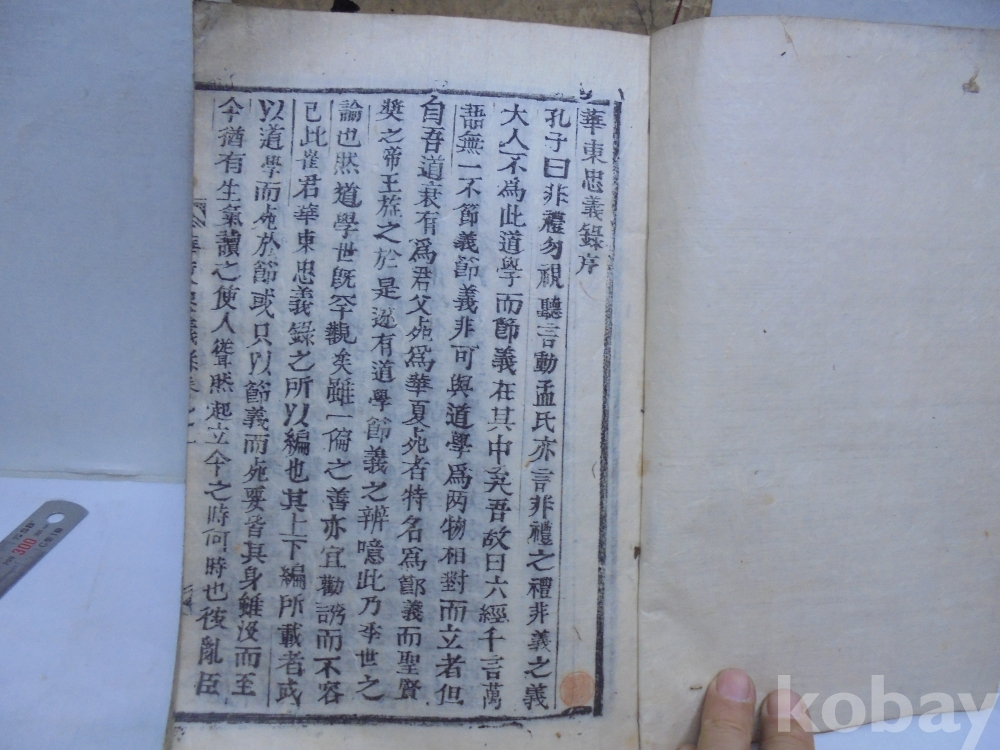 華東忠義錄序
孔子曰非禮勿視聽言動孟氏亦言非禮之禮非義之義
大人不為此道學而節義在其中矣吾故曰六經千言萬
語無一不節義節義非可與道學為兩物相對而立者但
自吾道衰有為君父死為華夏死者特名為節義而聖賢
獎之帝王旌之於是遂有道學節義之辨噫此乃季世之
論也然道學世旣罕觀矣雖一倫之善亦宜勸誘而不容
已此崔君華東忠義錄之所以編也其上下編所載者或
以道學而死於節或只以節義而死要皆其身雖沒而至
今猶有生氣讀之使人聳然起立今之時何時也彼亂臣
300
kobay